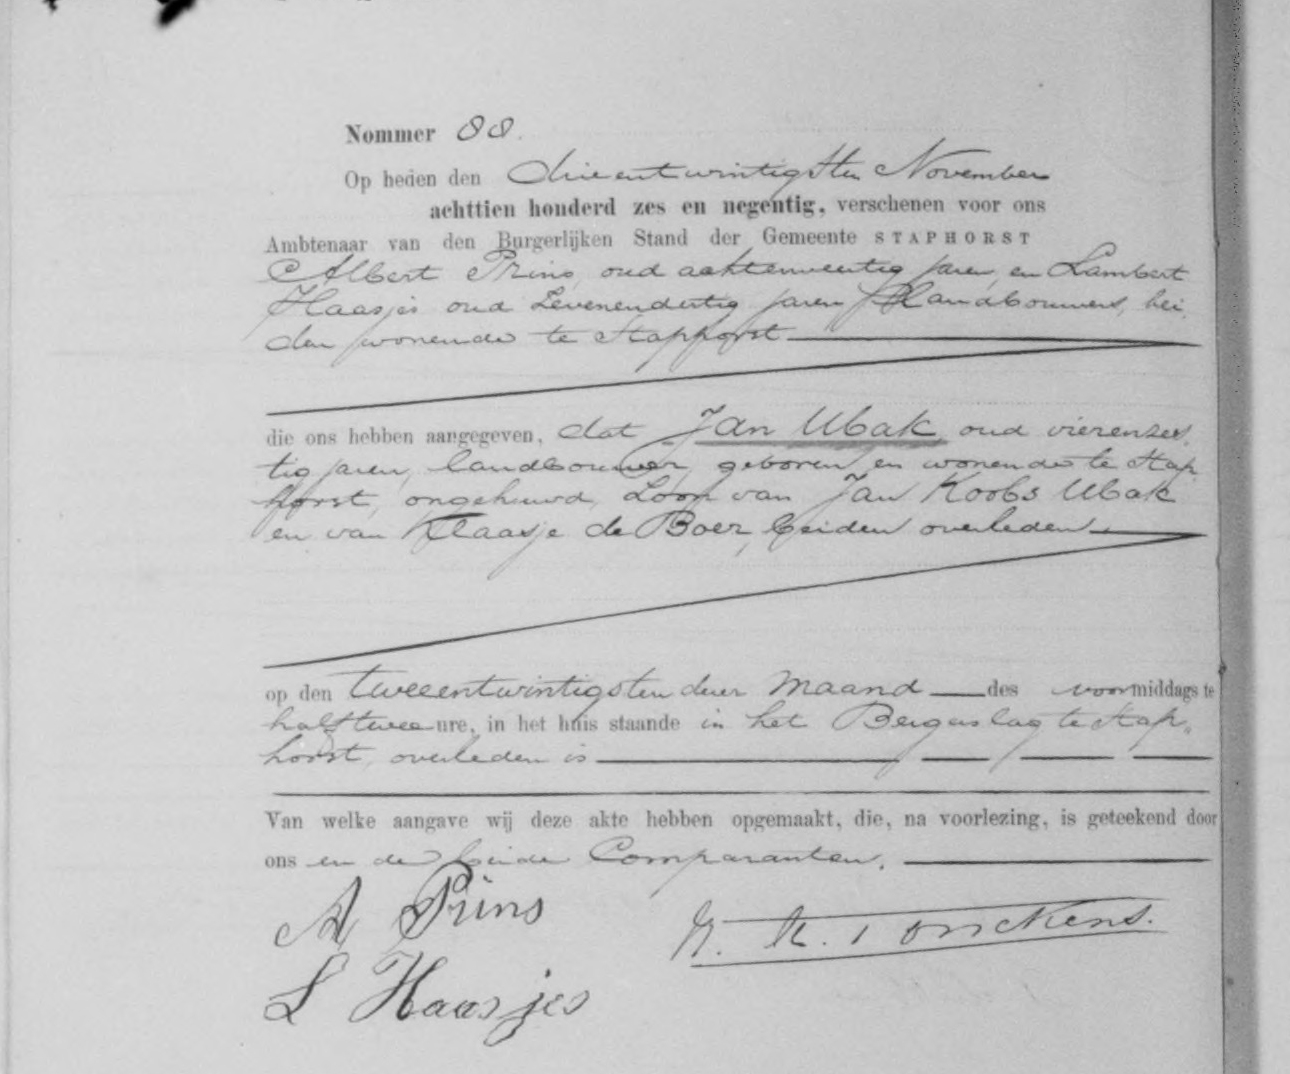 Nommer 88.
Op heden den drieentwintigsten November
achttien honderd zes en negentig, verschenen voor ons
Ambtenaar van den Burgerlijken Stand der Gemeente STAPHORST
Albert Prins, oud achtenveertig jaren, en Lambert
Haasjes oud zevenendertig jaren, landbouwers, bei
den wonende te Staphorst
die ons hebben aangegeven, dat Jan Mbak, oud vierenzes
tig jaren, landbouwer, geboren en wonende te Stap
horst, ongehuwd, zoon van Jan Koobs Mbak
en van Klaasje de Boer, beiden overleden
op den tweeentwintigsten dezer maand des voormiddags te
half twee ure, in het huis staande in het Bergerslag te Stap„
horst, overleden is
Van welke aangave wij deze akte hebben opgemaakt, die, na voorlezing, is geteekend door
ons en de beide Comparanten.
A Prins
L Haasjes